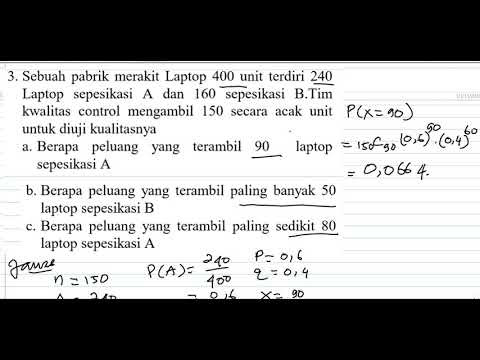 3. Sebuah pabrik merakit Laptop 400 unit terdiri 240
Laptop sepesikasi A dan 160 sepesikasi B.Tim
kwalitas control mengambil 150 secara acak unit
untuk diuji kualitasnya
a. Berapa peluang yang terambil 90 laptop
sepesikasi A
b. Berapa peluang yang terambil paling banyak 50
laptop sepesikasi B
c. Berapa peluang yang terambil paling sedikit 80
laptop sepesikasi A
P(X=90)
= 150C90 (0,6)^90 . (0,4)^60
= 0,0664.
n = 150
P(A) = 240/400
= 0,6
P = 0,6
q = 0,4
X = 90